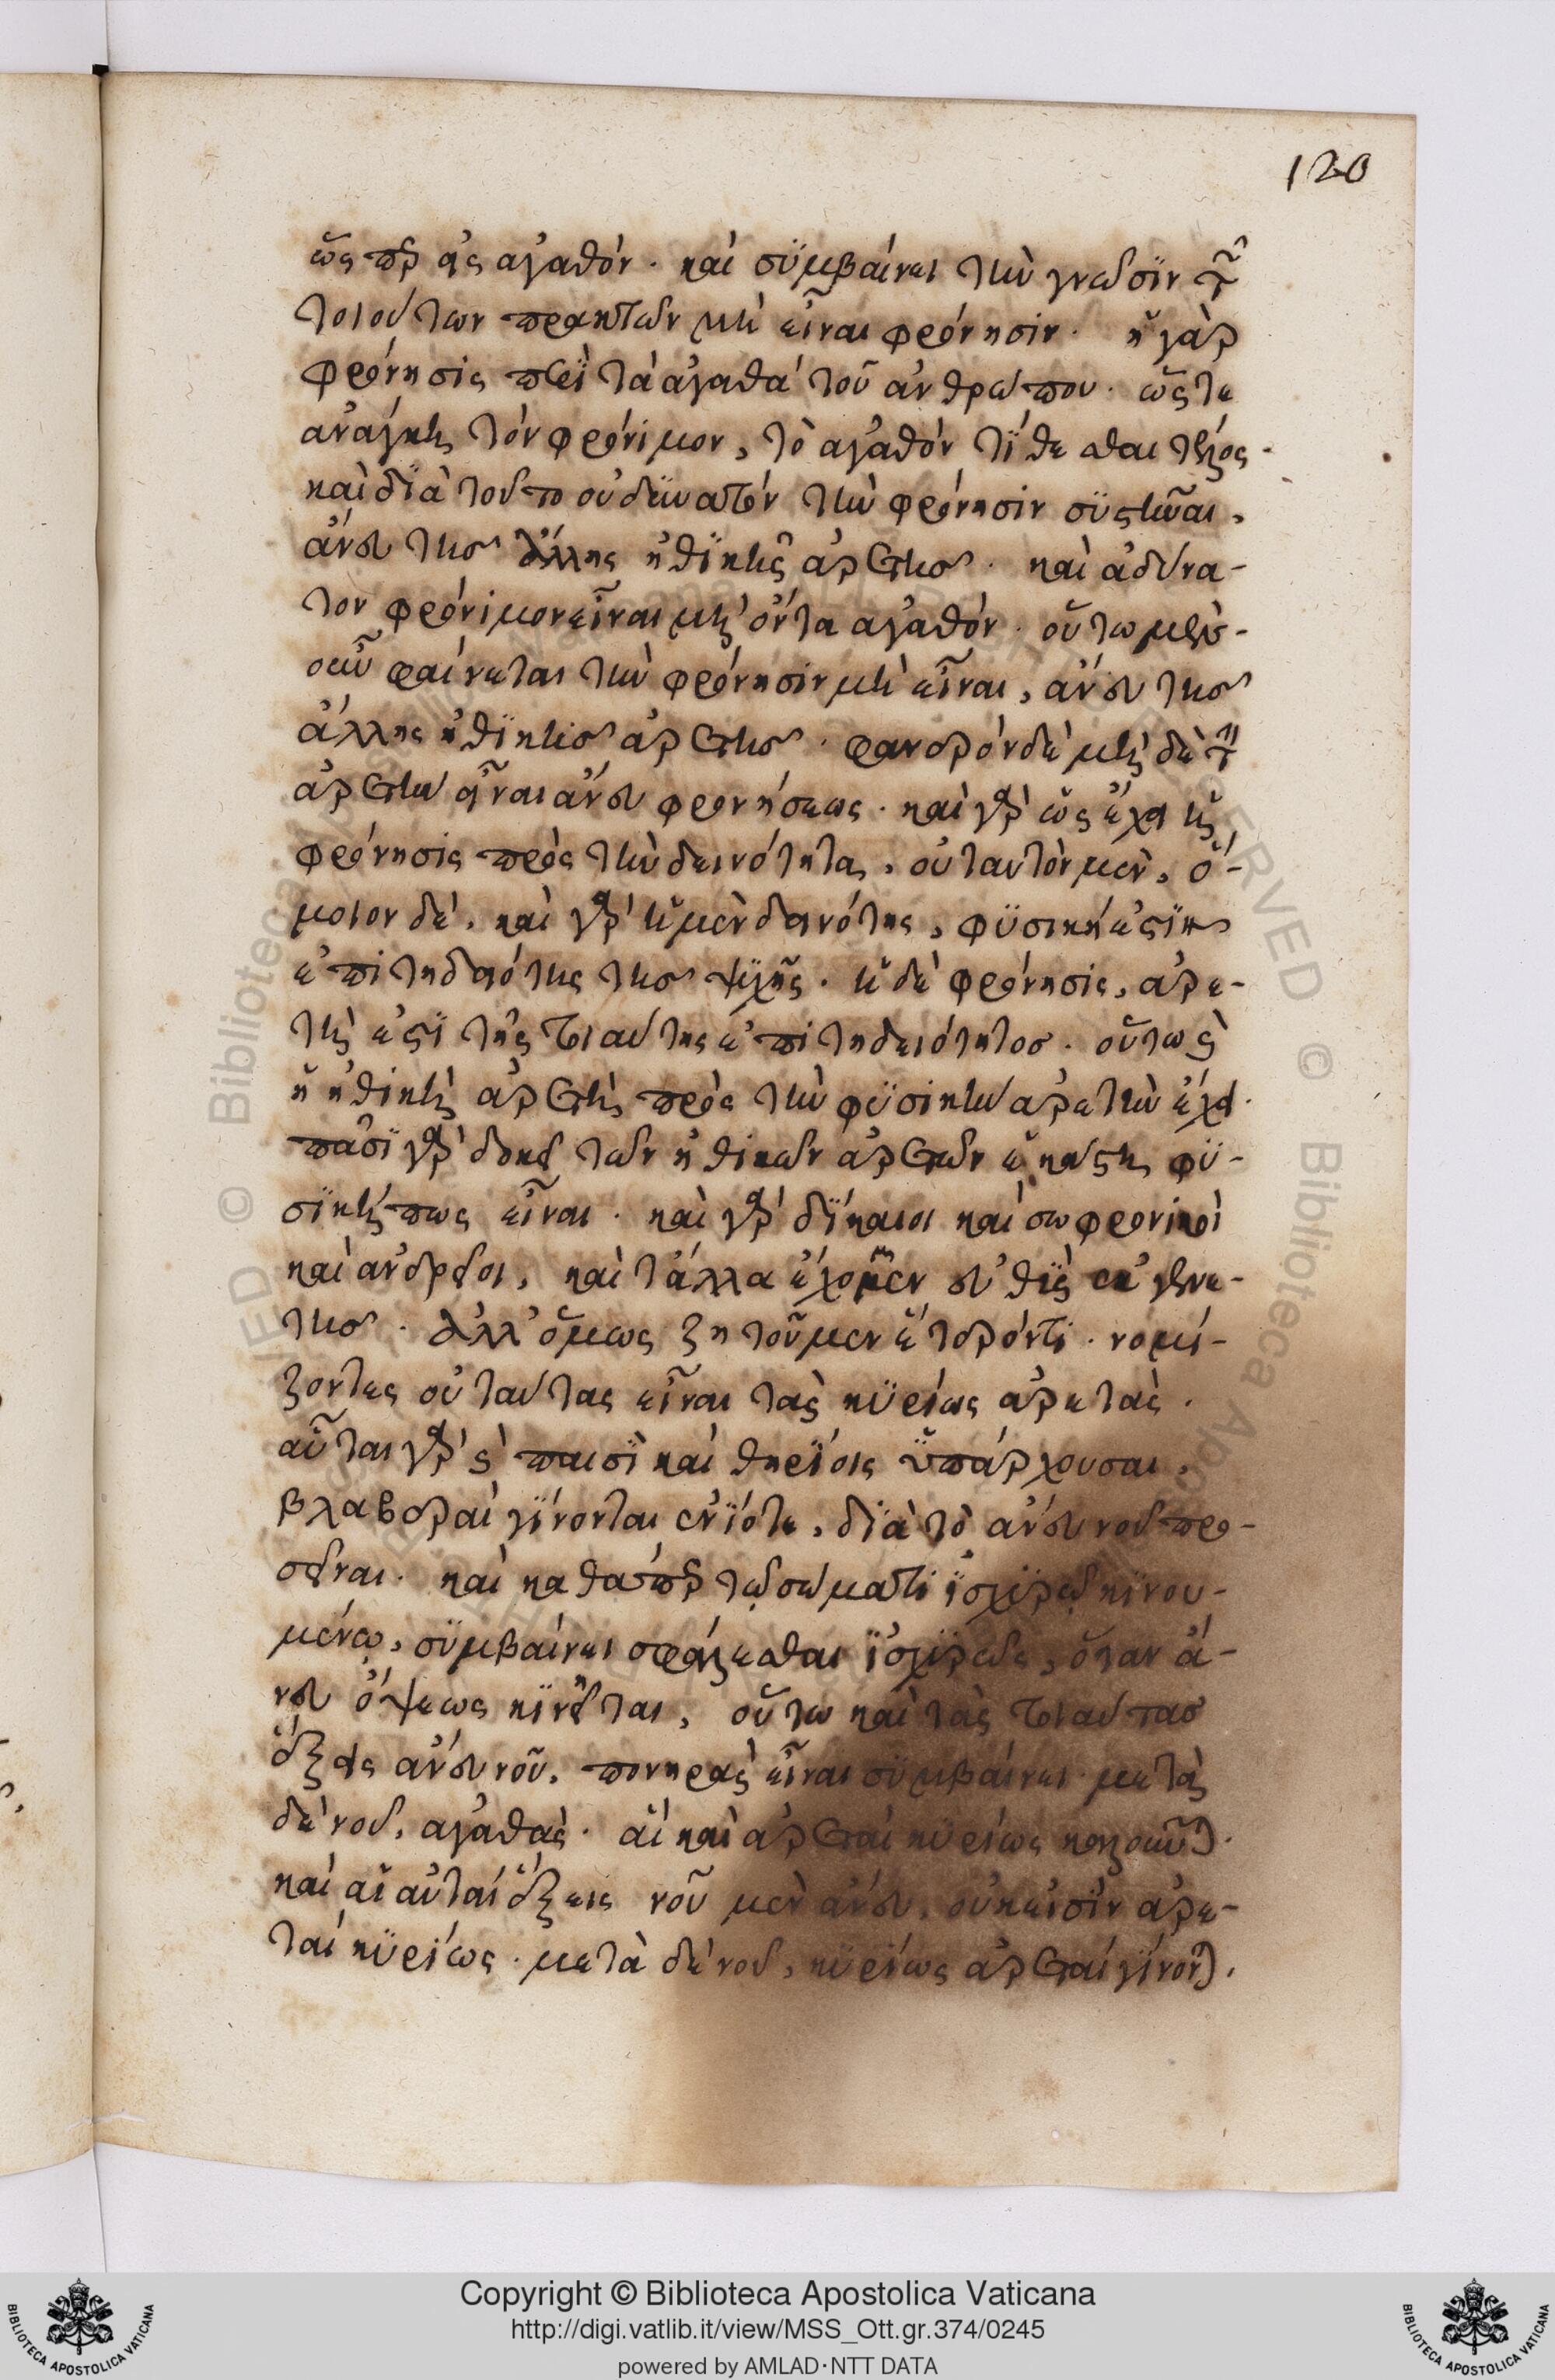 120
ὥσπερ εἰς ἀγαθόν. καὶ συμβαίνει τὴν γνῶσιν τῶν
τοιούτων πρακτῶν μὴ εἶναι φρόνησιν. ἡ γὰρ
φρόνησις περὶ τὰ ἀγαθὰ τοῦ ἀνθρώπου. ὥστε
ἀνάγκη τὸν φρόνιμον, τὸ ἀγαθὸν τίθεσθαι τέλος.
καὶ διὰ τοῦτο οὐ δυνατὸν τὴν φρόνησιν συστῆναι,
ἄνευ τῆς ἄλλης ἠθικῆς ἀρετῆς. καὶ ἀδύνα-
τον φρόνιμον εἶναι μὴ ὄντα ἀγαθόν. οὕτω μὲν
οὖν φαίνεται τὴν φρόνησιν μὴ εἶναι, ἄνευ τῆς
ἄλλης ἠθικῆς ἀρετῆς. φανερὸν δὲ μηδὲ τὴν
ἀρετὴν εἶναι ἄνευ φρονήσεως. καὶ γὰρ ὡς ἔχει ἡ
φρόνησις πρὸς τὴν δεινότητα, οὐ ταυτὸν μὲν, ὅ-
μοιον δέ. καὶ γὰρ ἡ μὲν δεινότης, φυσική ἐστιν
ἐπιτηδειότης τῆς ψυχῆς. ἡ δὲ φρόνησις, ἀρε-
τή ἐστι τῆς τοιαύτης ἐπιτηδειότητος. οὕτω καὶ
ἡ ἠθικὴ ἀρετὴ πρὸς τὴν φυσικὴν ἀρετὴν ἔχει.
πᾶσι γὰρ δοκεῖ τῶν ἠθικῶν ἀρετῶν ἑκάστη φυ-
σική πως εἶναι. καὶ γὰρ δίκαιοι καὶ σωφρονικοὶ
καὶ ἀνδρεῖοι, καὶ τἄλλα ἔχομεν εὐθὺς ἐκ γενε-
τῆς. ἀλλ' ὅμως ζητοῦμεν ἕτερόν τι. νομί-
ζοντες οὐ ταύτας εἶναι τὰς κυρίως ἀρετάς.
αὗται γὰρ καὶ παισὶ καὶ θηρίοις ὑπάρχουσαι,
βλαβεραὶ γίνονται ἐνίοτε, διὰ τὸ ἄνευ νοῦ προ-
σεῖναι. καὶ καθάπερ τῷ σώματι ἰσχυρῷ κινου-
μένῳ, συμβαίνει σφάλλεσθαι ἰσχυρῶς, ὅταν ἄ-
νευ ὄψεως κινῆται, οὕτω καὶ τὰς τοιαύτας
ἕξεις ἄνευ νοῦ, πονηρὰς εἶναι συμβαίνει. μετὰ
δὲ νοῦ, ἀγαθάς. αἳ καὶ ἀρεταὶ κυρίως καλοῦνται.
καὶ αἱ αὐταὶ ἕξεις νοῦ μὲν ἄνευ, οὐκ εἰσὶν ἀρε-
ταὶ κυρίως. μετὰ δὲ νοῦ, κυρίως ἀρεταὶ γίνονται.
Copyright © Biblioteca Apostolica Vaticana
http://digi.vatlib.it/view/MSS_Ott.gr.374/0245
powered by AMLAD·NTT DATA